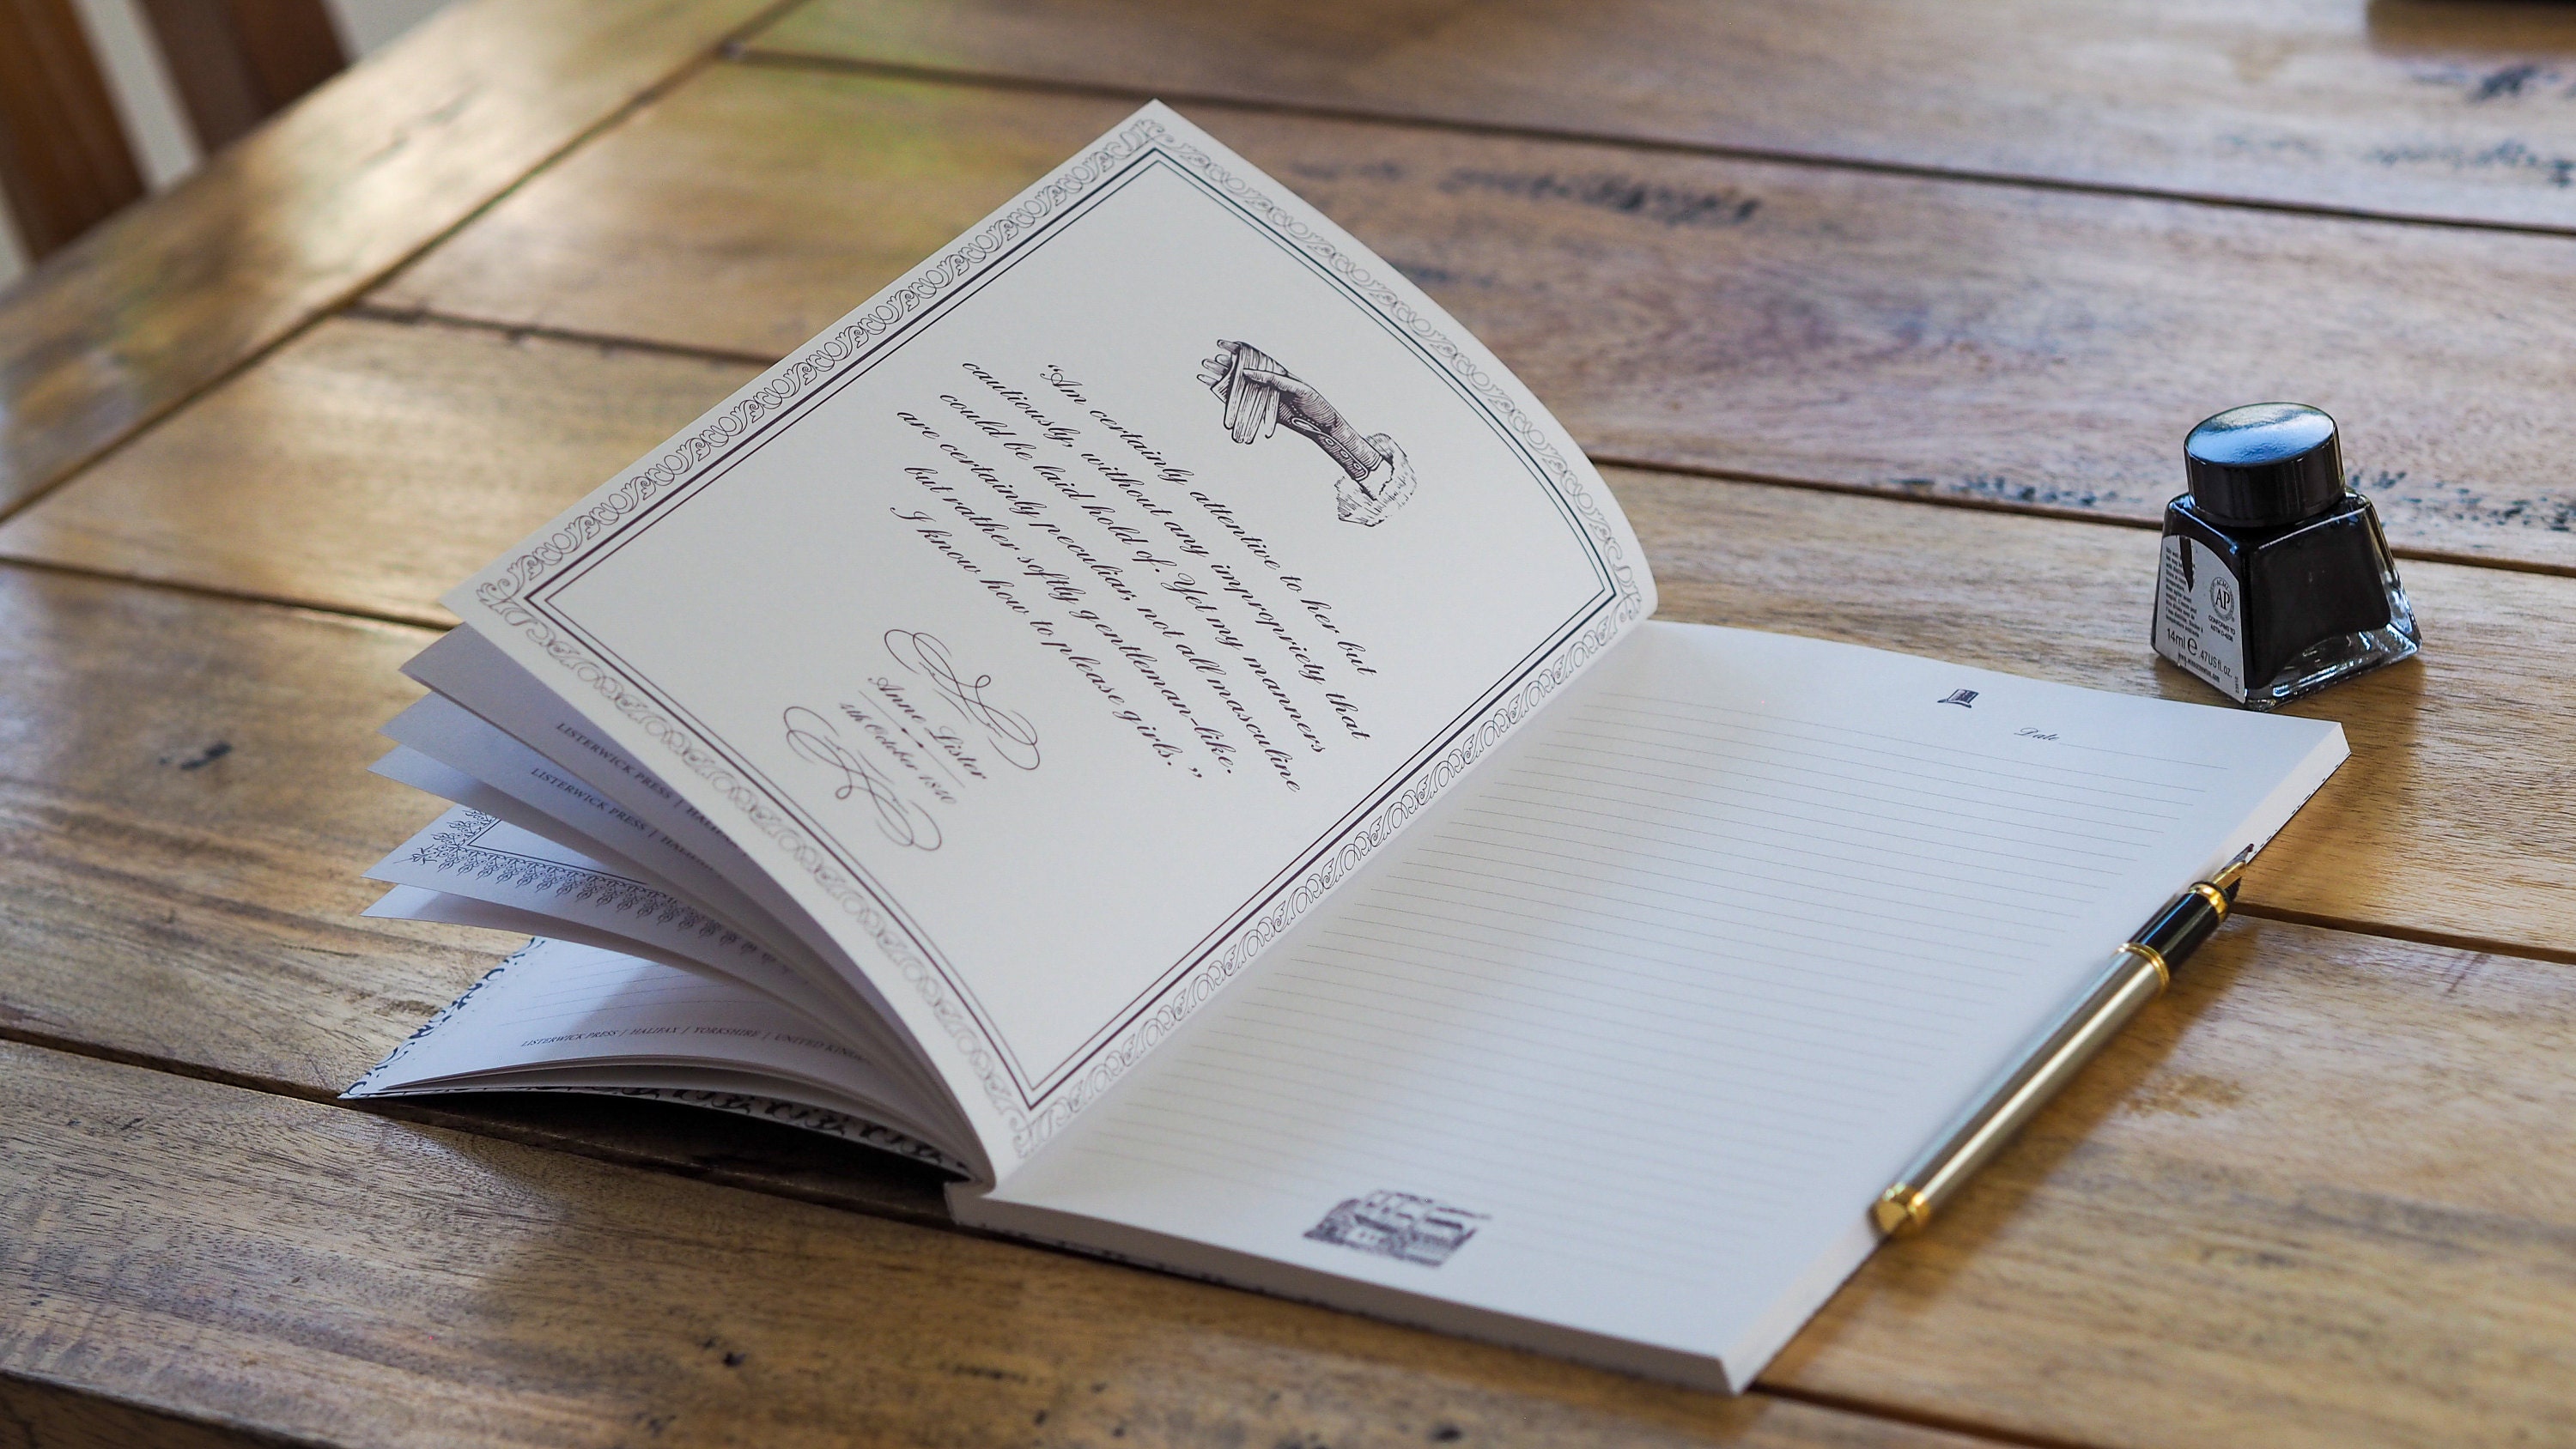 “Am certainly attentive to her but
cautiously, without any impropriety that
could be laid hold of. Yet my manners
are certainly peculiar, not all masculine
but rather softly gentleman-like.
I know how to please girls.”
Anne Lister
4th October 1820
LISTERWICK PRESS |
LISTERWICK PRESS |
LISTERWICK PRESS | HALIFAX | YORKSHIRE | UNITED
Date
AP
CONFORMS TO
14ml e .47US fl.oz.